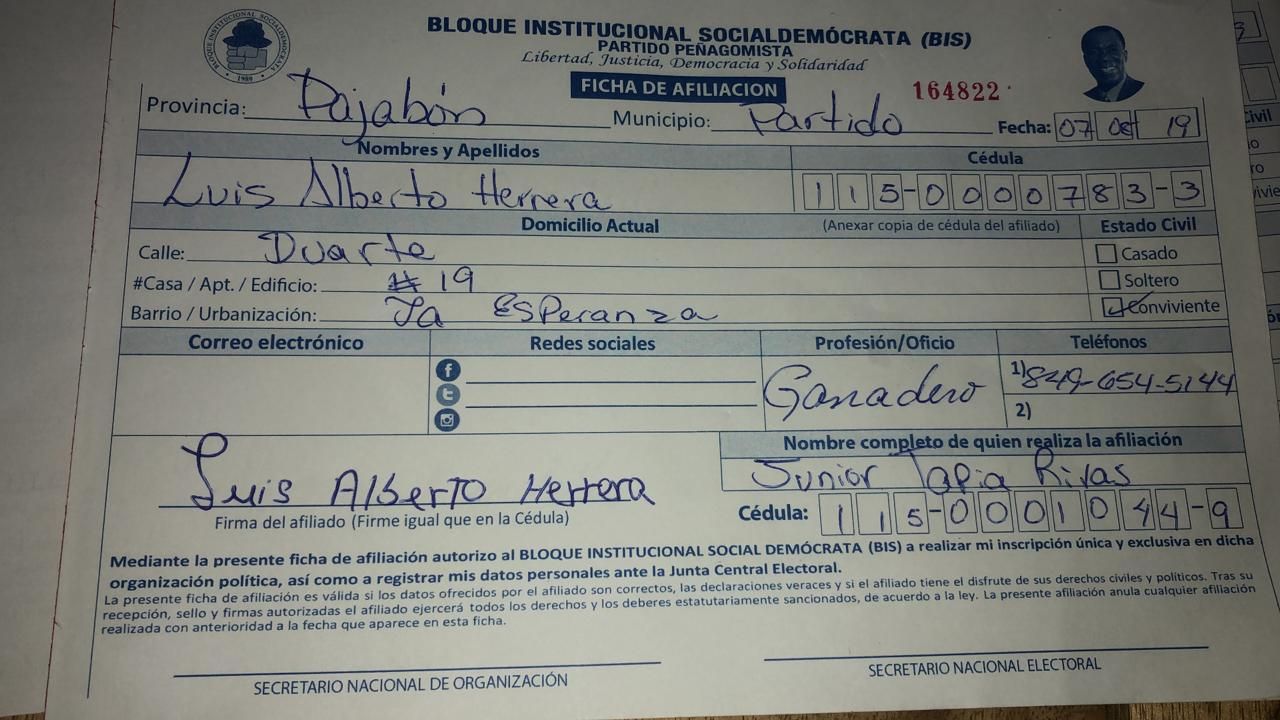 BLOQUE INSTITUCIONAL SOCIALDEMÓCRATA (BIS)
PARTIDO PEÑAGOMISTA
Libertad, Justicia, Democracia y Solidaridad
BLOQUE INSTITUCIONAL SOCIALDEMOCRATA
1989
FICHA DE AFILIACION
164822
Provincia: Dajabón Municipio: Partido Fecha: 07 19
Nombres y Apellidos Cédula
Luis Alberto Herrera 115-0000783-3
Domicilio Actual (Anexar copia de cédula del afiliado) Estado Civil
Calle: Duarte Casado
#Casa / Apt. / Edificio: #19 Soltero
Barrio / Urbanización: La Esperanza Conviviente
Correo electrónico Redes sociales Profesión/Oficio Teléfonos
Ganadero 1) 849-654-5144
2)
Nombre completo de quien realiza la afiliación
Junior Tapia Rivas
Luis Alberto Herrera
Firma del afiliado (Firme igual que en la Cédula) Cédula: 115-0001044-9
Mediante la presente ficha de afiliación autorizo al BLOQUE INSTITUCIONAL SOCIAL DEMÓCRATA (BIS) a realizar mi inscripción única y exclusiva en dicha
organización política, así como a registrar mis datos personales ante la Junta Central Electoral.
La presente ficha de afiliación es válida si los datos ofrecidos por el afiliado son correctos, las declaraciones veraces y si el afiliado tiene el disfrute de sus derechos civiles y políticos. Tras su
recepción, sello y firmas autorizadas el afiliado ejercerá todos los derechos y los deberes estatutariamente sancionados, de acuerdo a la ley. La presente afiliación anula cualquier afiliación
realizada con anterioridad a la fecha que aparece en esta ficha.
SECRETARIO NACIONAL DE ORGANIZACIÓN SECRETARIO NACIONAL ELECTORAL